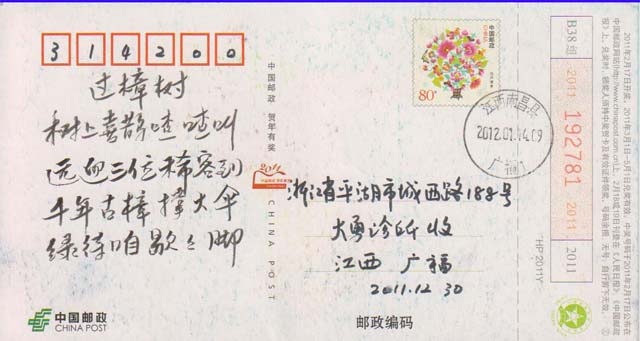 314200
过樟树
树上喜鹊喳喳叫
远迎三位稀客到
千年古樟撑大伞
绿待咱歇歇脚
中国邮政
CHINA POST
中国邮政 贺年有奖
2011
CHINA POST
中国邮政
CHINA
80分
江西南昌县
2012.01.14.09
广福
浙江省平湖市城西路188号
大勇诊所收
江西 广福
2011.12 30
邮政编码
HP2011Y
B38组
2011
192781
2011
2011